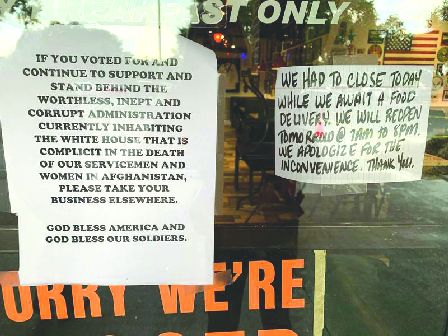 AST ONLY
IF YOU VOTED FOR AND
CONTINUE TO SUPPORT AND
STAND BEHIND THE
WORTHLESS, INEPT AND
CORRUPT ADMINISTRATION
CURRENTLY INHABITING
THE WHITE HOUSE THAT IS
COMPLICIT IN THE DEATH
OF OUR SERVICEMEN AND
WOMEN IN AFGHANISTAN,
PLEASE TAKE YOUR
BUSINESS ELSEWHERE.
GOD BLESS AMERICA AND
GOD BLESS OUR SOLDIERS.
WE HAD TO CLOSE TODAY
WHILE WE AWAIT A FOOD
DELIVERY. WE WILL REOPEN
@ 7AM TO 8PM.
WE APOLOGIZE FOR THE
INCONVENIENCE. THANK YOU.
ORRY WE'RE